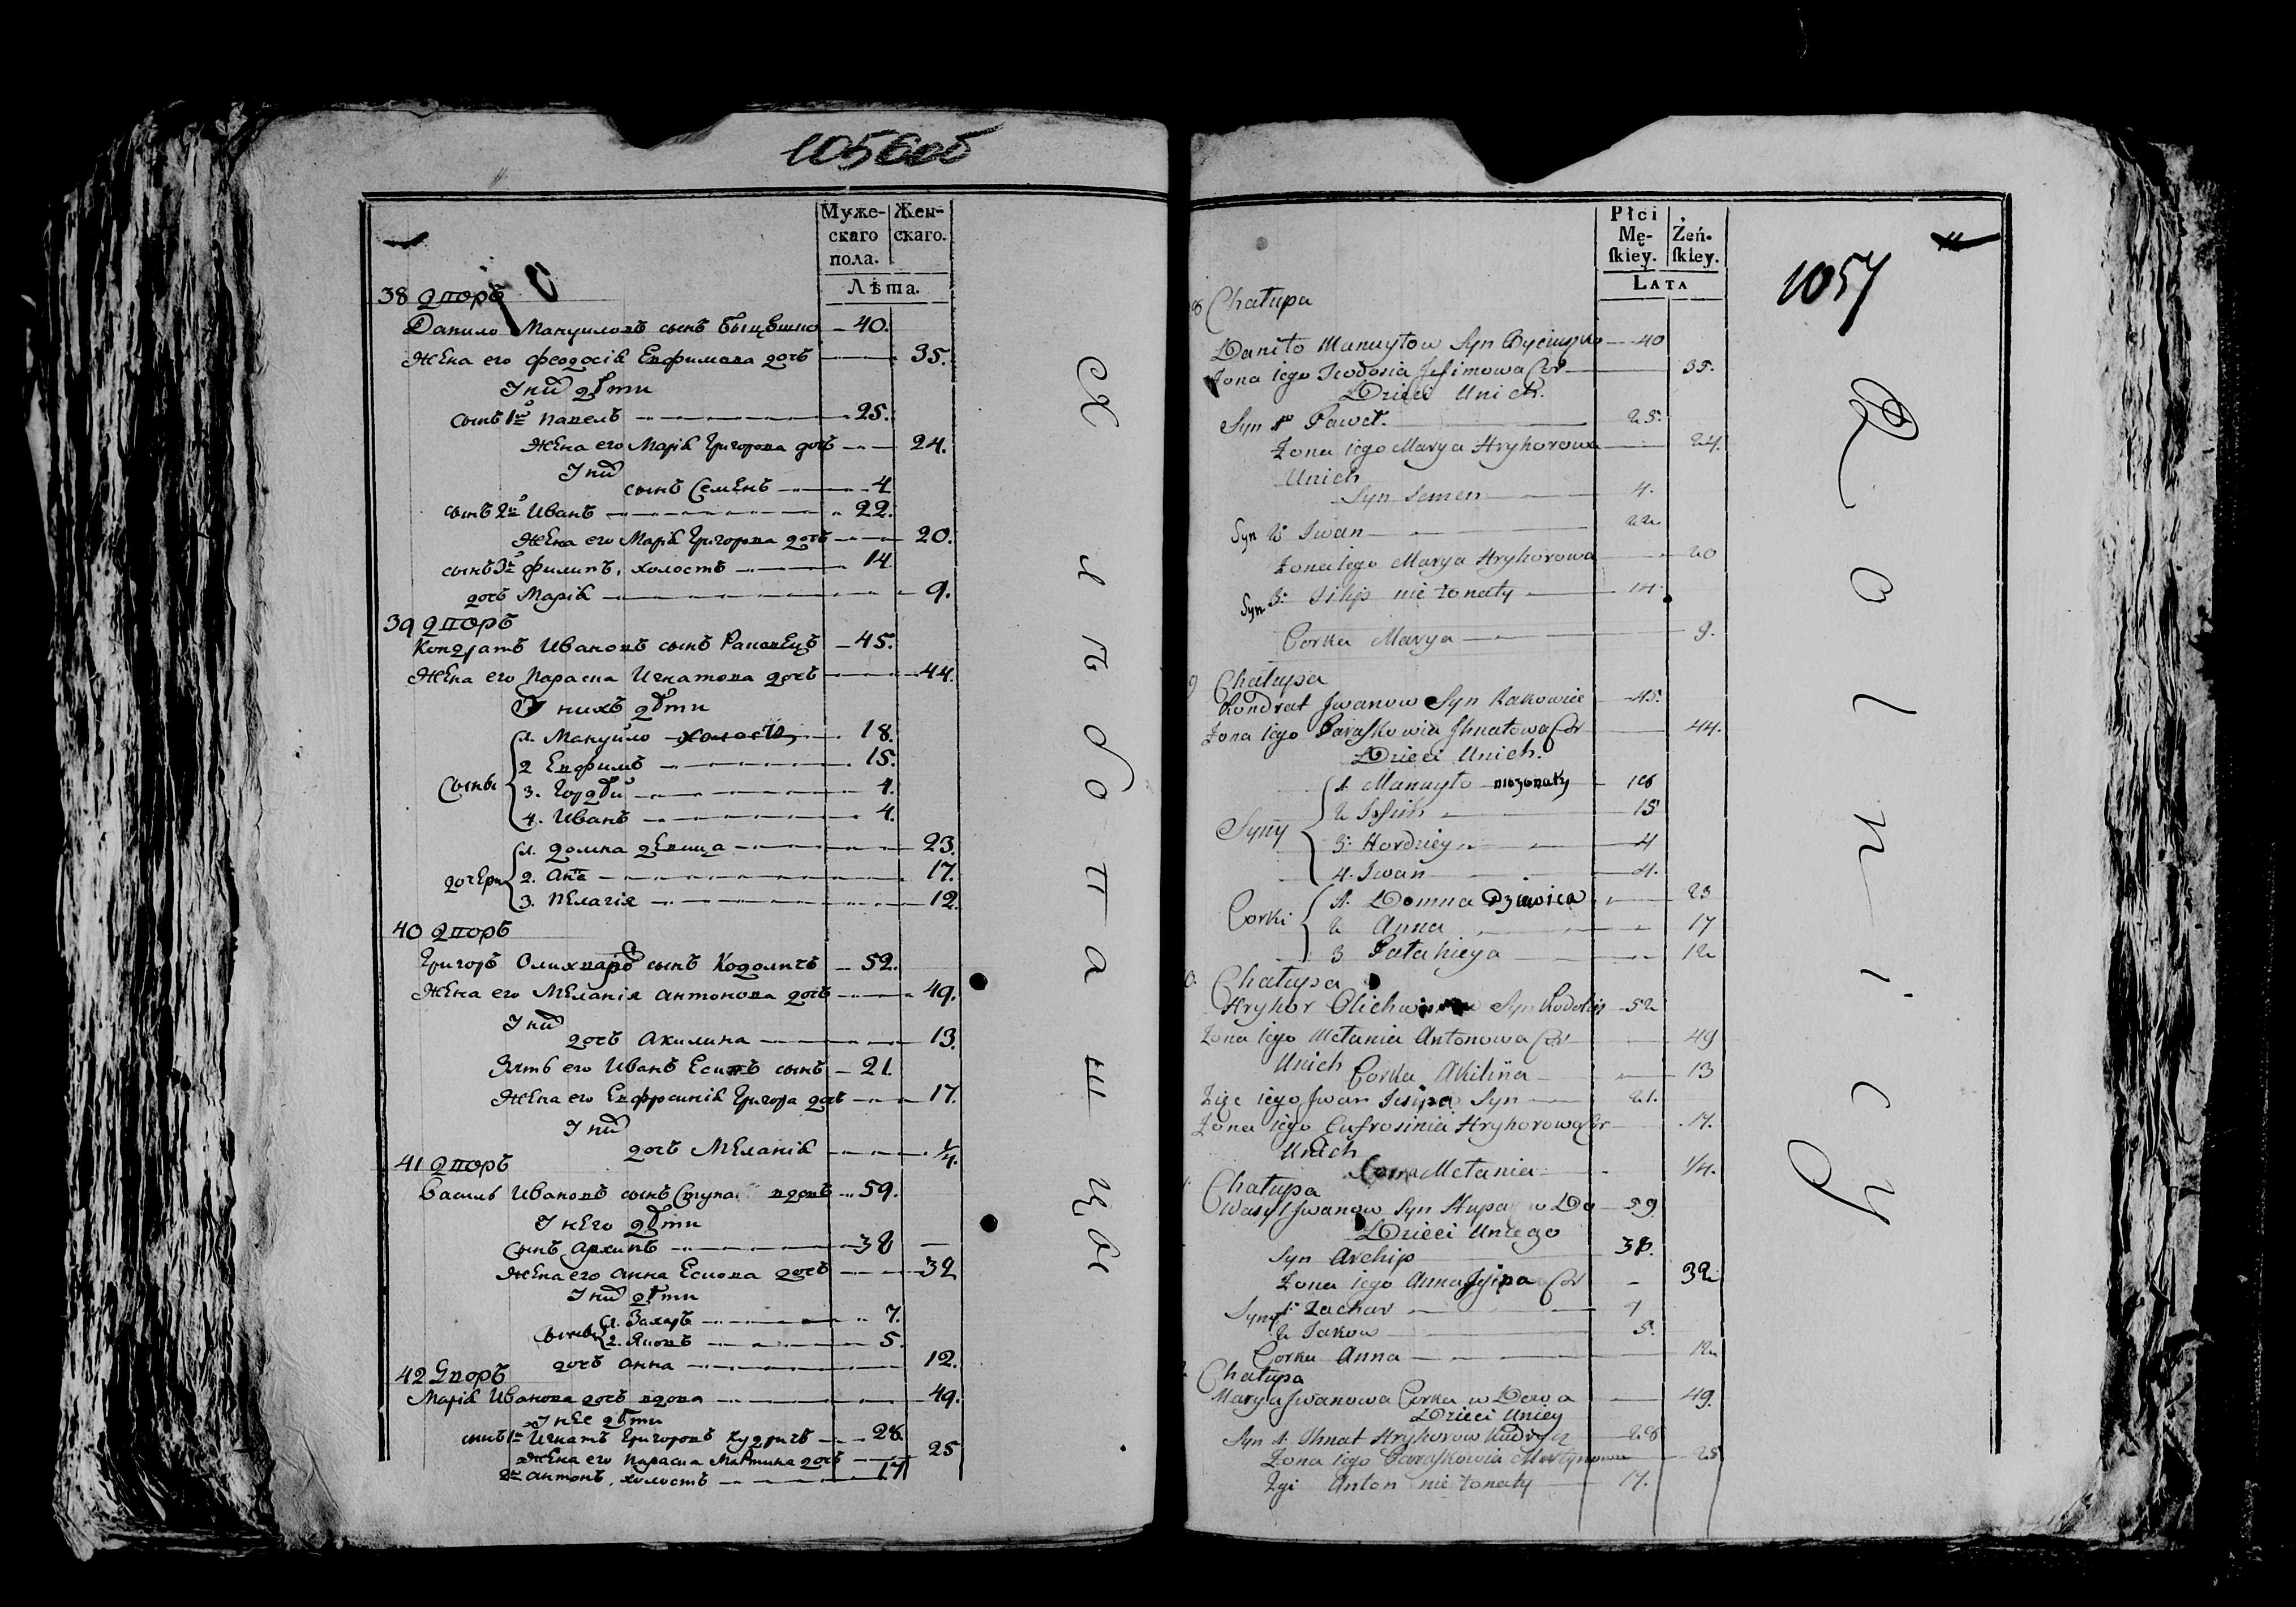 1056об
Муже-
скаго
пола.
Жен-
скаго.
Лѣта.
38 Дворъ
Данило Мануиловъ сынъ 40.
Жена его Феодосія Евфимова дочь 35.
У них дѣти
сынъ 1й Павелъ 25.
Жена его Марія Григорова дочь 24.
У них
сынъ Семенъ 4
сынъ 2й Иванъ 22.
Жена его Марія Григорова дочь 20.
сынъ 3й Филипъ, холостъ 14
дочь Марія 9.
39 Дворъ
Кондратъ Ивановъ сынъ Раковецъ 45.
Жена его Параска Игнатова дочь 44.
У нихъ дѣти
Сыны
1. Мануйло холостъ 18.
2 Евфимъ 15.
3. Гордѣй 4.
4. Иванъ 4.
дочери
1. Домна дѣвица 23.
2. Анна 17.
3. Пелагія 12.
40 Дворъ
Григоръ сынъ 52.
Жена его Меланія Антонова дочь 49.
У них
дочь Акилина 13.
Зять его Иванъ сынъ 21.
Жена его Евфросинія Григора дочь 17.
У них
дочь Меланія 1/4.
41 Дворъ
Василь Ивановъ сынъ Ступа вдовъ 59.
У него дѣти
Сынъ Архипъ 38
Жена его Анна дочь 32
У них дѣти
Сыны
1. Захаръ 7.
2. Яковъ 5.
дочь Анна 12.
42 Дворъ
Марія Иванова дочь вдова 49.
У нее дѣти
сынъ 1й Игнатъ Григоровъ Кудричъ 28.
Жена его Параска Мартина дочь 25
2й Антонъ, холостъ 17
хлѣбопашцы
Płci
Mę-
ſkiey.
Żeń-
ſkiey.
LATA
1057
8 Chałupa
Daniło Manuyłow Syn 40
Żona iego Teodosia Jefimowa Cor 35.
Dzieci Unich.
Syn 1 Paweł. 25.
Żona iego Marya Hryhorowa 24.
Unich
Syn Semen 4.
Syn 2 Iwan 22
Żona iego Marya Hryhorowa 20
Syn 3 Filip nie żonaty 14.
Corka Marya 9.
9 Chałupa
Kondrat Iwanow Syn Rakowiec 45.
Żona iego Paraſkowia Ihnatowa Cor 44.
Dzieci Unich.
Syny
1. Manuyło nieżonaty 18
2 Jefim 15
3. Hordziey 4
4. Iwan 4.
Corki
1. Domna Dziewica 23
2 Anna 17
3 Pałahieya 12
0. Chałupa
Hryhor Syn 52
Żona iego Mełania Antonowa Cor 49
Unich Corka Akilina 13
Zięć iego Iwan Syn 21.
Żona iego Eufrosinia Hryhorowa Cor 17.
Unich
Corka Mełania 1/4.
Chałupa
Wasyl Iwanow Syn Stupa 59
Dzieci Uniego
Syn Archip 38.
Żona iego Anna Cor 32
Syny
1. Zachar 7
2 Jakow 5.
Corka Anna 12
Chałupa
Marya Iwanowa Corka wDowa 49.
Dzieci Uniey
Syn 1. Ihnat Hryhorow Kudrycz 28
Żona iego Paraſkowia Martynowa 25
2gi Anton nie żonaty 17.
Rolnicy